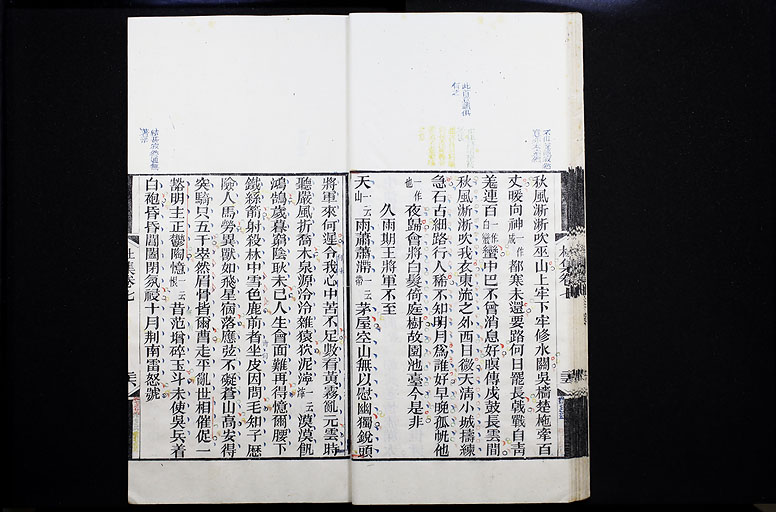 秋風淅淅吹巫山上牢下牢修水關吳檣楚柁牽百
丈暖向神一作成都寒未還要路何日罷長戟戰自青
羌連百白蠻一作蠻中巴不曾消息好暝傳戍鼓長雲間
秋風淅淅吹我衣東流之外西日微天清小城擣練
急石古細路行人稀不知明月爲誰好早晚孤帆他
一作也夜歸會將白髮倚庭樹故園池臺今是非
久雨期王將軍不至
天一云山雨蕭蕭滯一云帶茅屋空山無以慰幽獨銳頭
將軍來何遲令我心中苦不足數看黃霧亂元雲時
聽嚴風折喬木泉源泠泠雜猿狖泥濘一云滓漠漠飢
鴻鵠歲暮窮陰耿未已人生會面難再得憶爾腰下
鐵絲箭射殺林中雪色鹿前者坐皮因問毛知子歷
險人馬勞異獸如飛星宿落應弦不礙蒼山高安得
突騎只五千崒然眉骨皆爾曹走平亂世相催促一
豁明主正鬱陶憶一云恨昔范增碎玉斗未使吳兵着
白袍昏昏閶闔閉氛祲十月荆南雷怒號
杜集卷七